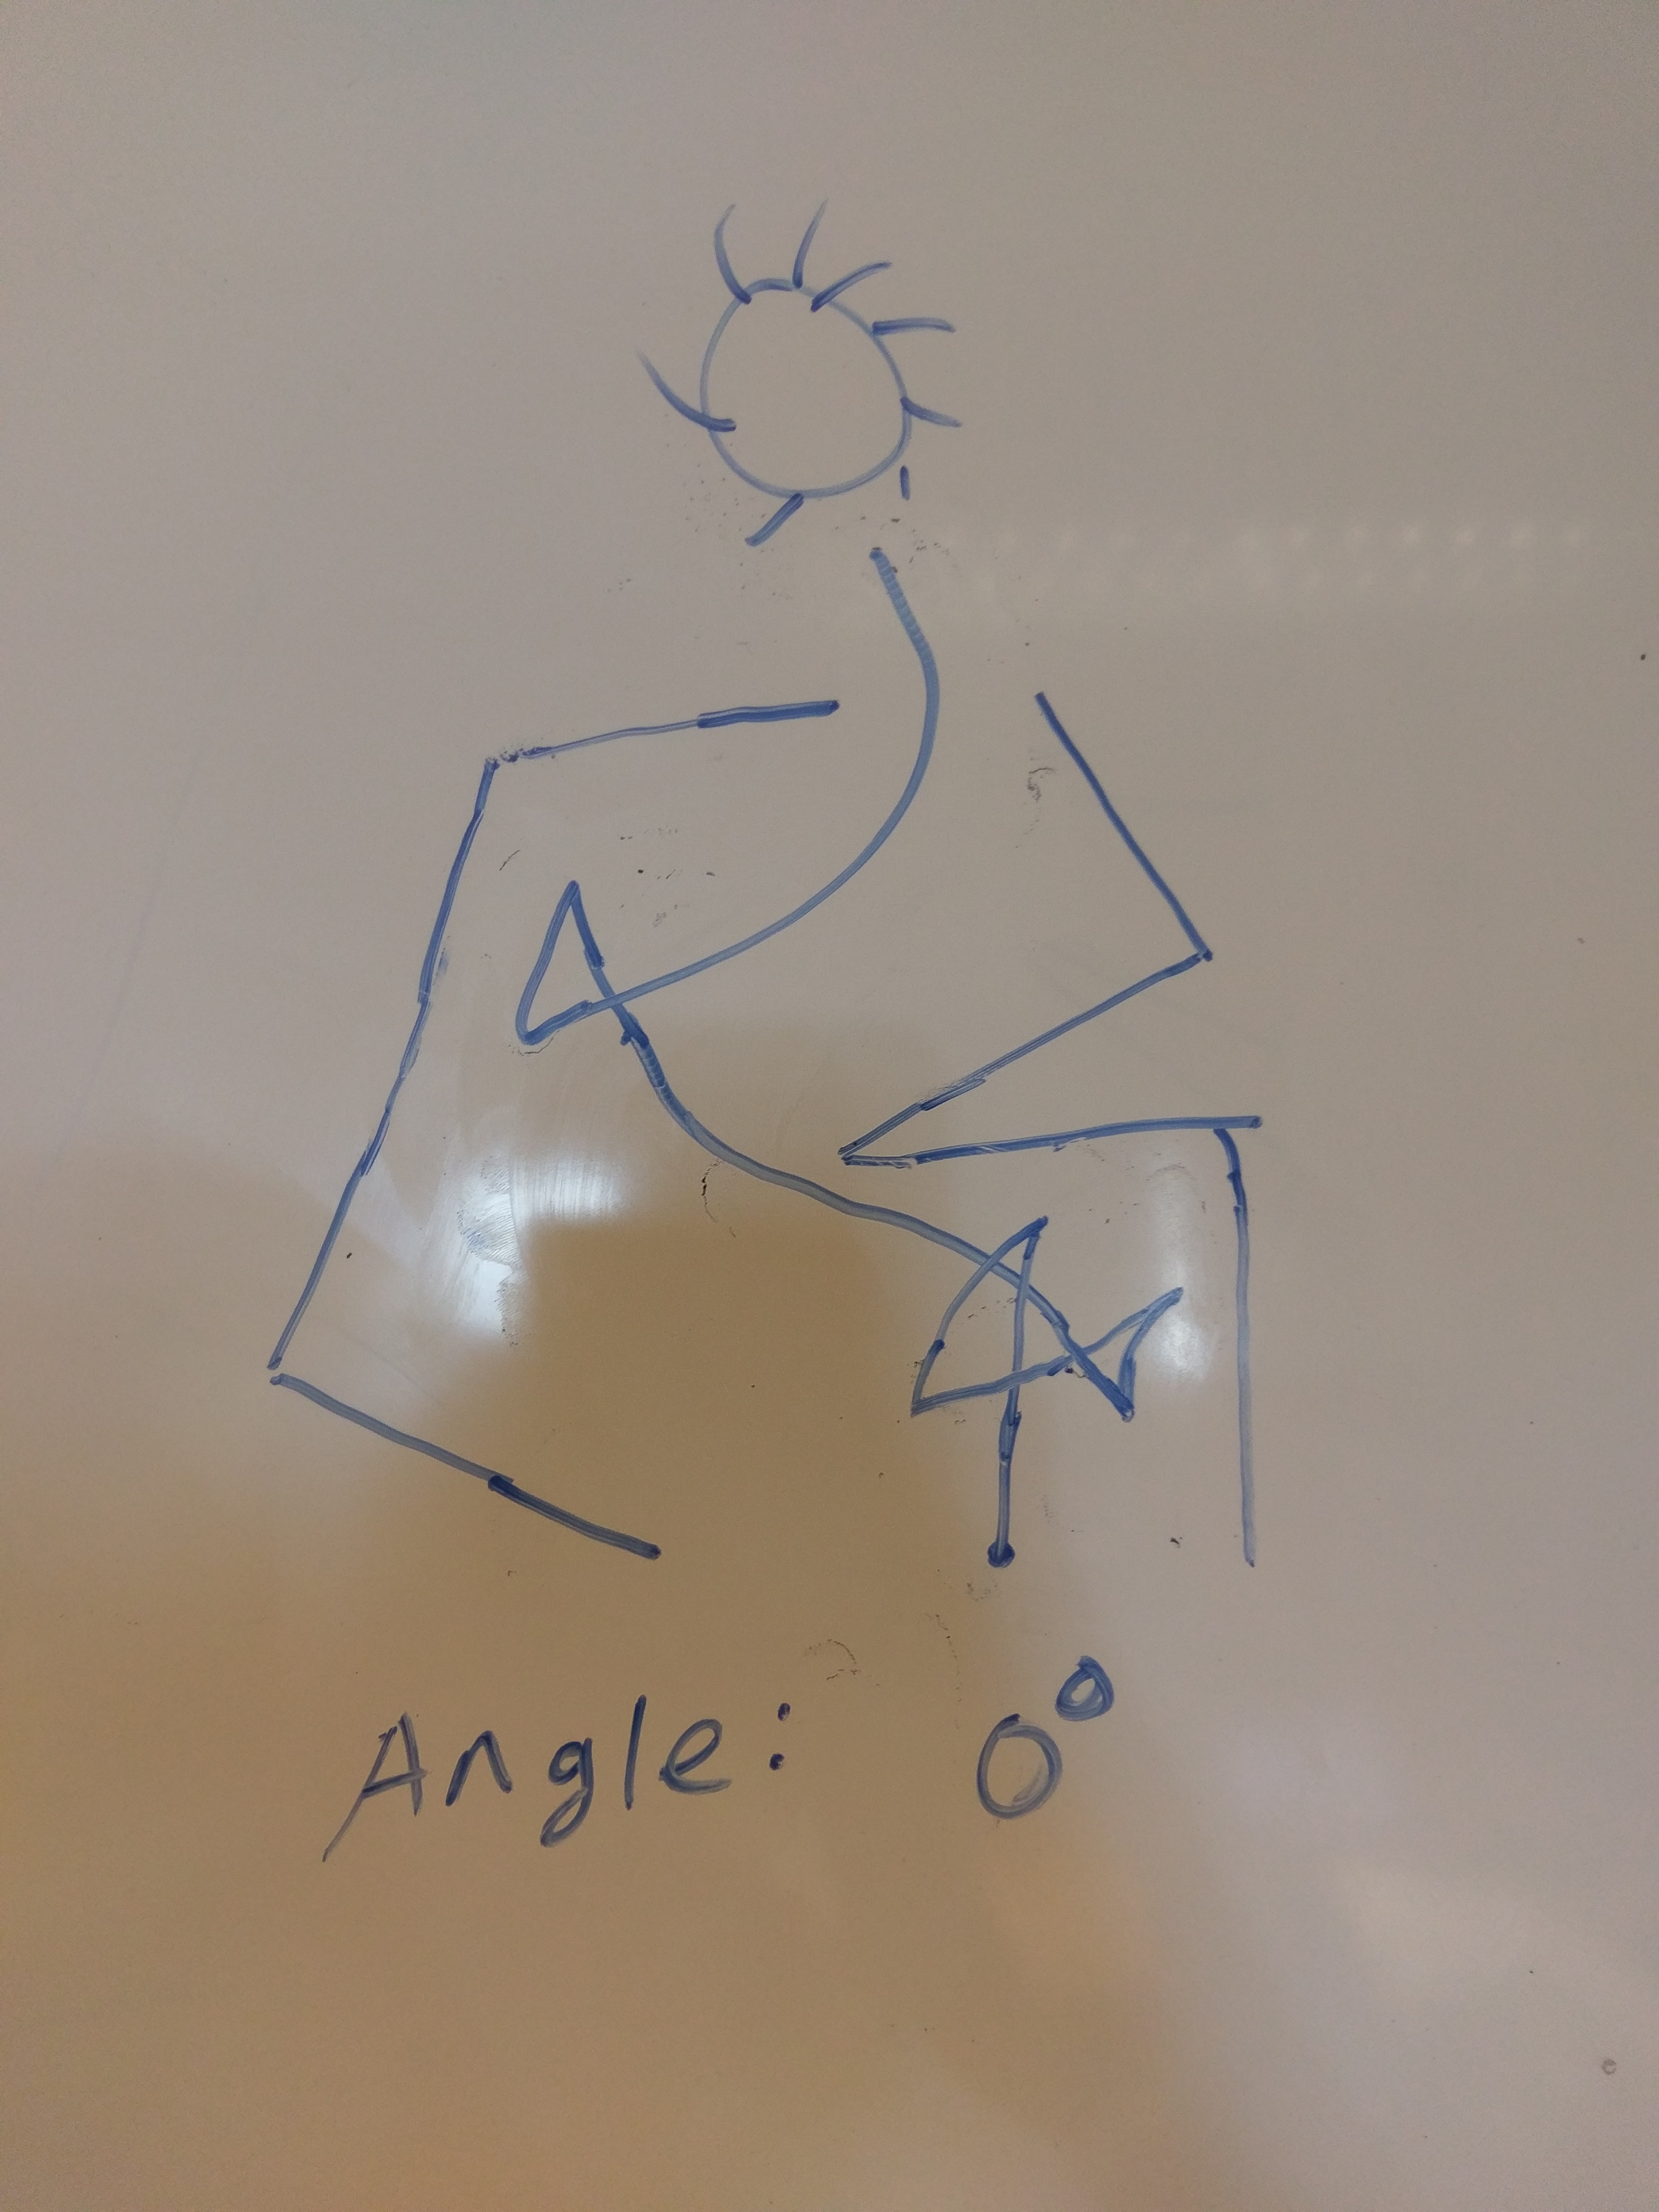 Angle: 0°